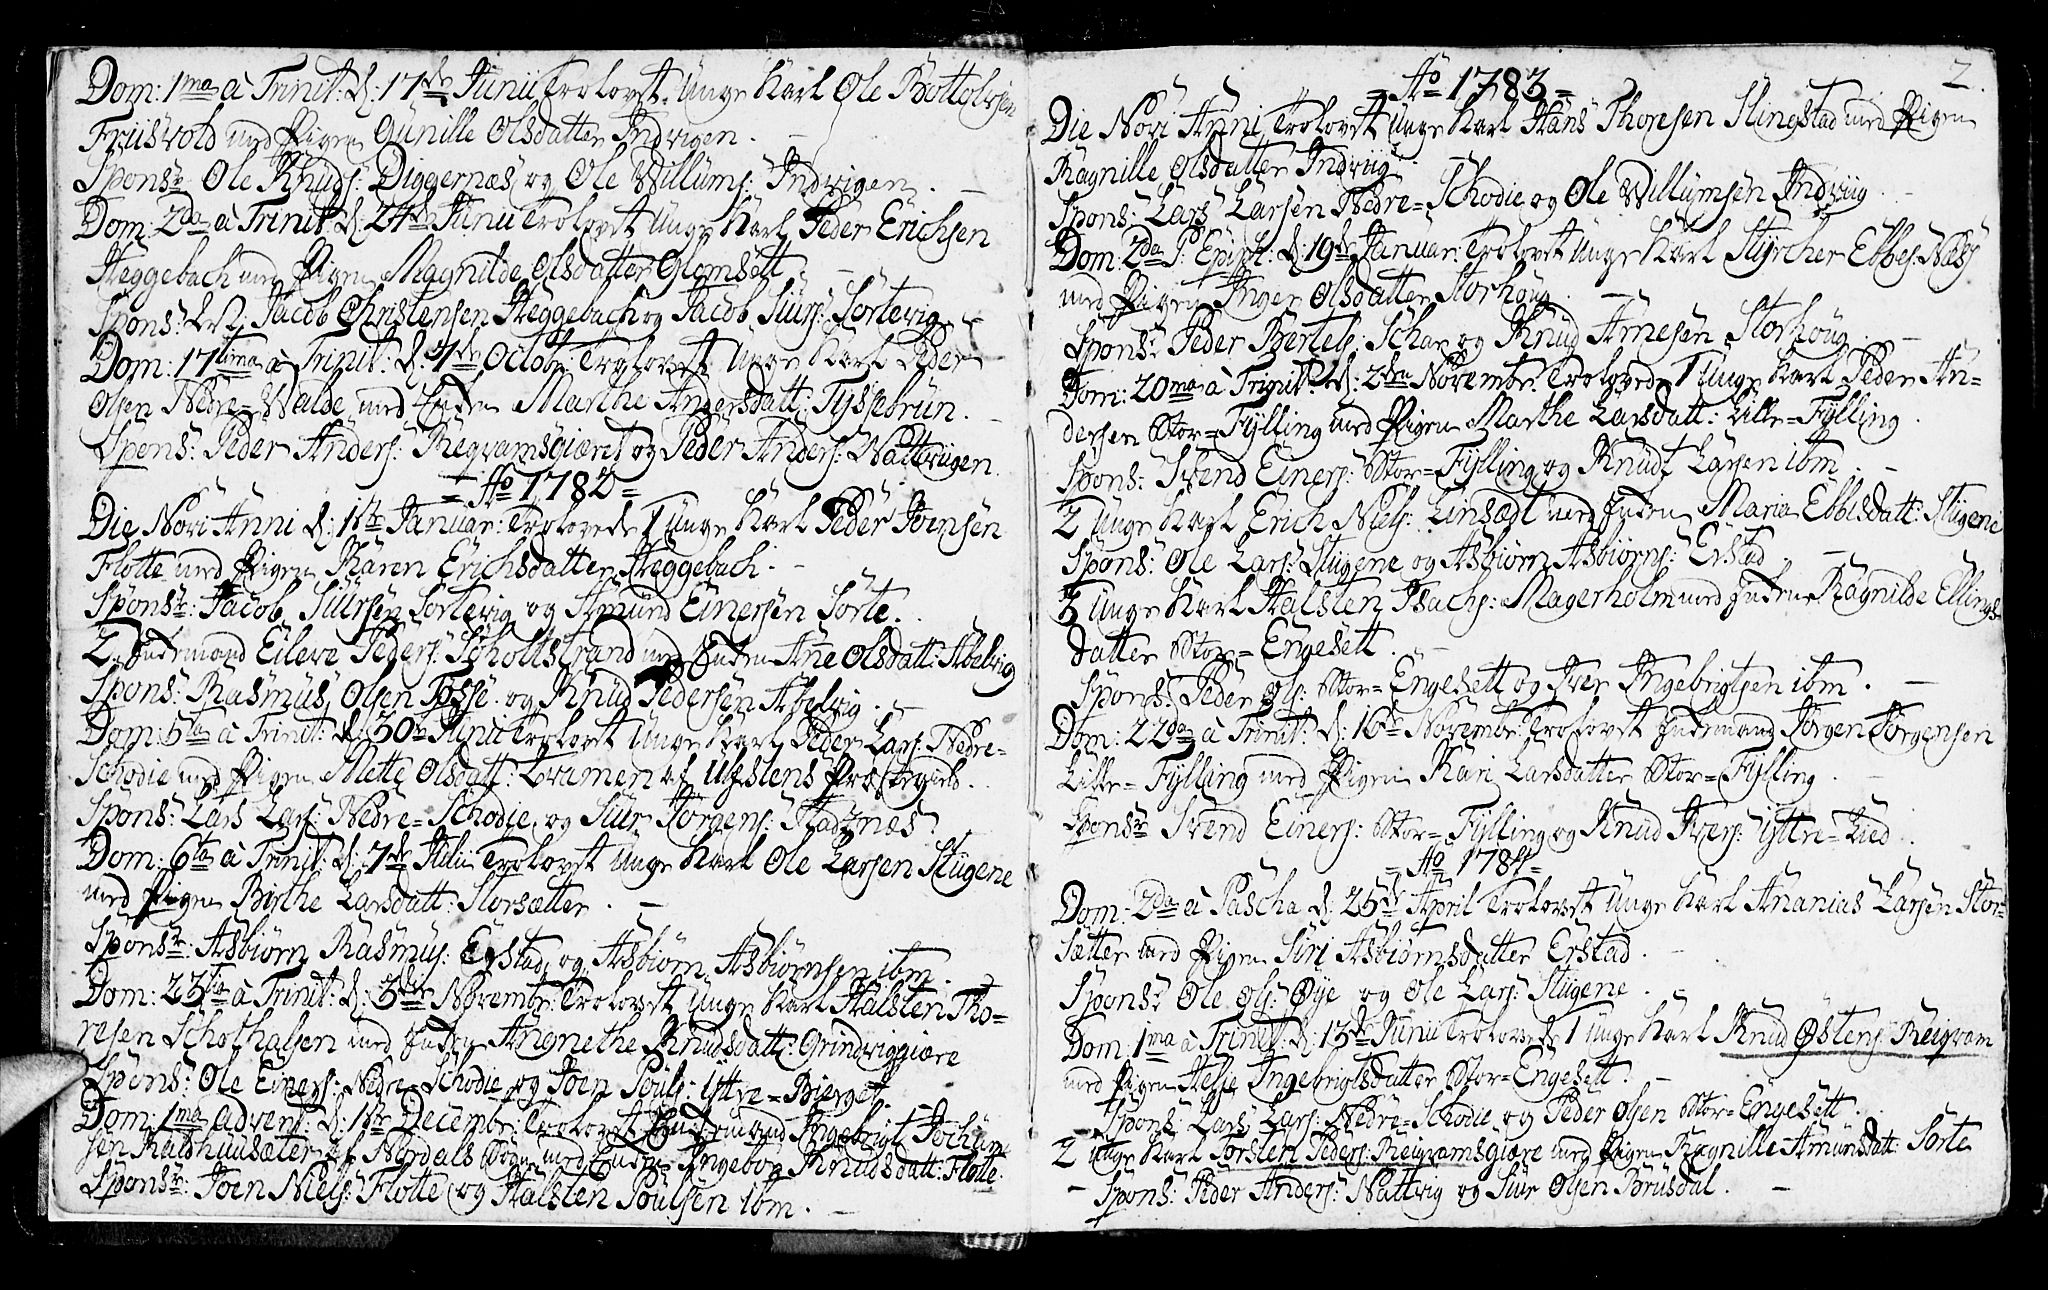 Dom: 1ma à Trinit: d: 17de Junii Trolovet Unge Karl Ole Bottolvsen
Friisvold med Pigen Gunille Olsdatter Indvigen.
Spons: Ole Knuds: Diggernæs og Ole Willums: Indvigen.
Dom: 2da à Trinit: d: 24de Junii Trolovet Unge Karl Peder Erichsen
Heggebach med Pigen Magnilde Olsdatter Glomsett.
Spons: Jacob Christensen Heggebach og Jacob Siurs: Sortevig.
Dom: 17tima à Trinit: d: 7de Octob: Trolovet Unge Karl Peder
Olsen Nedre=Walde med Enken Marthe Andersdatt: Tyssebrun.
Spons: Peder Anders: Regvamsgiæret og Peder Anders: Nattvigen.
= Ao 1782 =
Die Novi Anni d: 1ste Januar: Trolovede 1 Unge Karl Peder Joensen
Flotte med Pigen Karen Erichsdatter Heggebach.
Spons: Jacob Siursen Sortevig og Amund Einersen Sorte.
2 Enkemand Eileve Peders: Scholtstrand med Enken Anne Olsdatt: Abelvig
Spons: Rasmus Olsen Fosse og Knud Pedersen Abelvig.
Dom: 5ta à Trinit: d: 30te Junii Trolovet Unge Karl Peder Lars: Nedre-
Schodie med Pigen Mette Olsdatt: Framen af Ulfstens Præstegield.
Spons: Lars Lars: Nedre=Schodie og Siur Jorgens: Hadznæs.
Dom: 6ta à Trinit: d: 7de Julii Trolovet Unge Karl Ole Larsen Stugene
med Pigen Birthe Larsdatt: Storsætter.
Spons: Asbiørn Rasmus: Erstad og Asbiørn Asbiørnsen ibm.
Dom: 23tia à Trinit: d: 3die Novembr: Trolovet Unge Karl Halsten Tho=
resen Scholhalsen med Enken Angnethe Knudsdatt: Grindviggiære
Spons: Ole Einers: Nedre=Schodie og Joen Pouls: Yttre=Bierget.
Dom: 1ma advent: d: 1ste Decembr: Trolovet Enkemand Ingebrigt Jochum
sen Raldhuusæter af Nordals Sogn med Enken Ingebor Knudsdatt: Flotte.
Spons: Joen Niels: Flotte og Halsten Poulsen ibm.
2
= Ao 1783 =
Die Novi Anni Trolovet Unge Karl Hans Thoresen Slingstad med Pigen
Ragnille Olsdatter Indviig.
Spons: Lars Larsen Nedre=Schodie og Ole Willumsen Indviig
Dom: 2da P: Epiph: d: 19de Januar: Trolovet Unge Karl Styrcher Ebbes: Næss
med Pigen Inger Olsdatter Storhoug.
Spons: Peder Bertels: Schar og Knud Arnesen Storhoug.
Dom: 20ma à Trinit: d: 2den Novembr: Trolovede 1 Unge Karl Peder An=
dersen Stor=Fylling med Pigen Marthe Larsdatt: Lille=Fylling.
Spons: Svend Einers: Stor=Fylling og Knudt Larsen ibm.
2 Unge Karl Erich Niels: Linsædt med Enken Maria Ebbesdatt: Stugene
Spons: Ole Lars: Stugene og Asbiørn Asbiørns: Erstad
3 Unge Karl Halsten Isachs: Magerholm med Enken Ragnilde Ellings-
datter Stor=Engesett.
Spons: Peder Ols: Stor=Engesett og Iver Ingebrigtsen ibm.
Dom: 22da à Trinit: d: 16de Novembr: Trolovet Enkemand Jørgen Jørgensen
Lille=Fylling med Pigen Kari Larsdatter Stor=Fylling.
Spons: Svend Einers: Stor=Fylling og Knud Ivers: Yttre=Lied.
= Ao 1784 =
Dom: 2da à Pascha d: 25de April Trolovet Unge Karl Ananias Larsen Stor=
Sætter med Pigen Siri Asbiørnsdatter Erstad.
Spons: Ole Ols: Øye og Ole Lars: Stugene.
Dom: 1ma à Trinit: d: 13de Junii Trolovede 1 Unge Karl Knud Østens: Reigvam
med Pigen Helje Ingebrigtsdatter Stor=Engesett.
Spons: Lars Lars: Nedre=Schodie og Peder Olsen Stor=Engesett.
2 Unge Karl Torsten Peders: Reigvamsgiære med Pigen Ragnille Amunsdatt: Sorte
Spons: Peder Anders: Nattvig og Siur Olsen Brusdal.